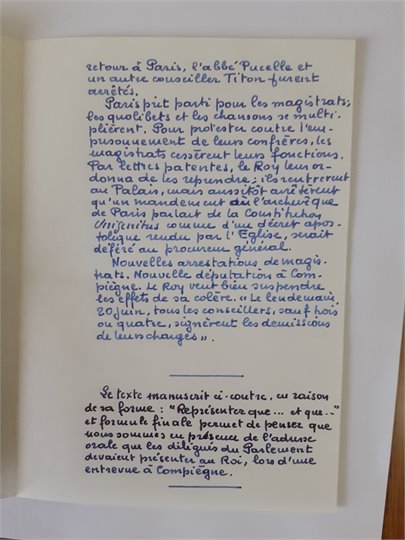 retour à Paris, l'abbé Pucelle et
un autre conseiller Titon furent
arrêtés.
Paris prit parti pour les magistrats;
les quolibets et les chansons se multi-
plièrent. Pour protester contre l'em-
prisonnement de leurs confrères, les
magistrats cessèrent leurs fonctions.
Par lettres patentes, le Roy leur or-
donna de les reprendre; ils rentrèrent
au Palais, mais aussitôt arrêtèrent
qu'un mandement de l'archevêque
de Paris parlait de la Constitution
Unigenitus comme d'un décret apos-
tolique rendu par l'Eglise, serait
déféré au procureur général.
Nouvelles arrestations de magis-
trats. Nouvelle députation à Com-
piègne. Le Roy veut bien suspendre
les effets de sa colère. « Le lendemain
20 juin, tous les conseillers, sauf trois
ou quatre, signèrent les démissions
de leurs charges ».
Le texte manuscrit ci-contre, en raison
de sa forme : "Représenter que ... et que..."
et formule finale permet de penser que
nous sommes en présence de l'adresse
orale que les délégués du Parlement
devaient présenter au Roi, lors d'une
entrevue à Compiègne.